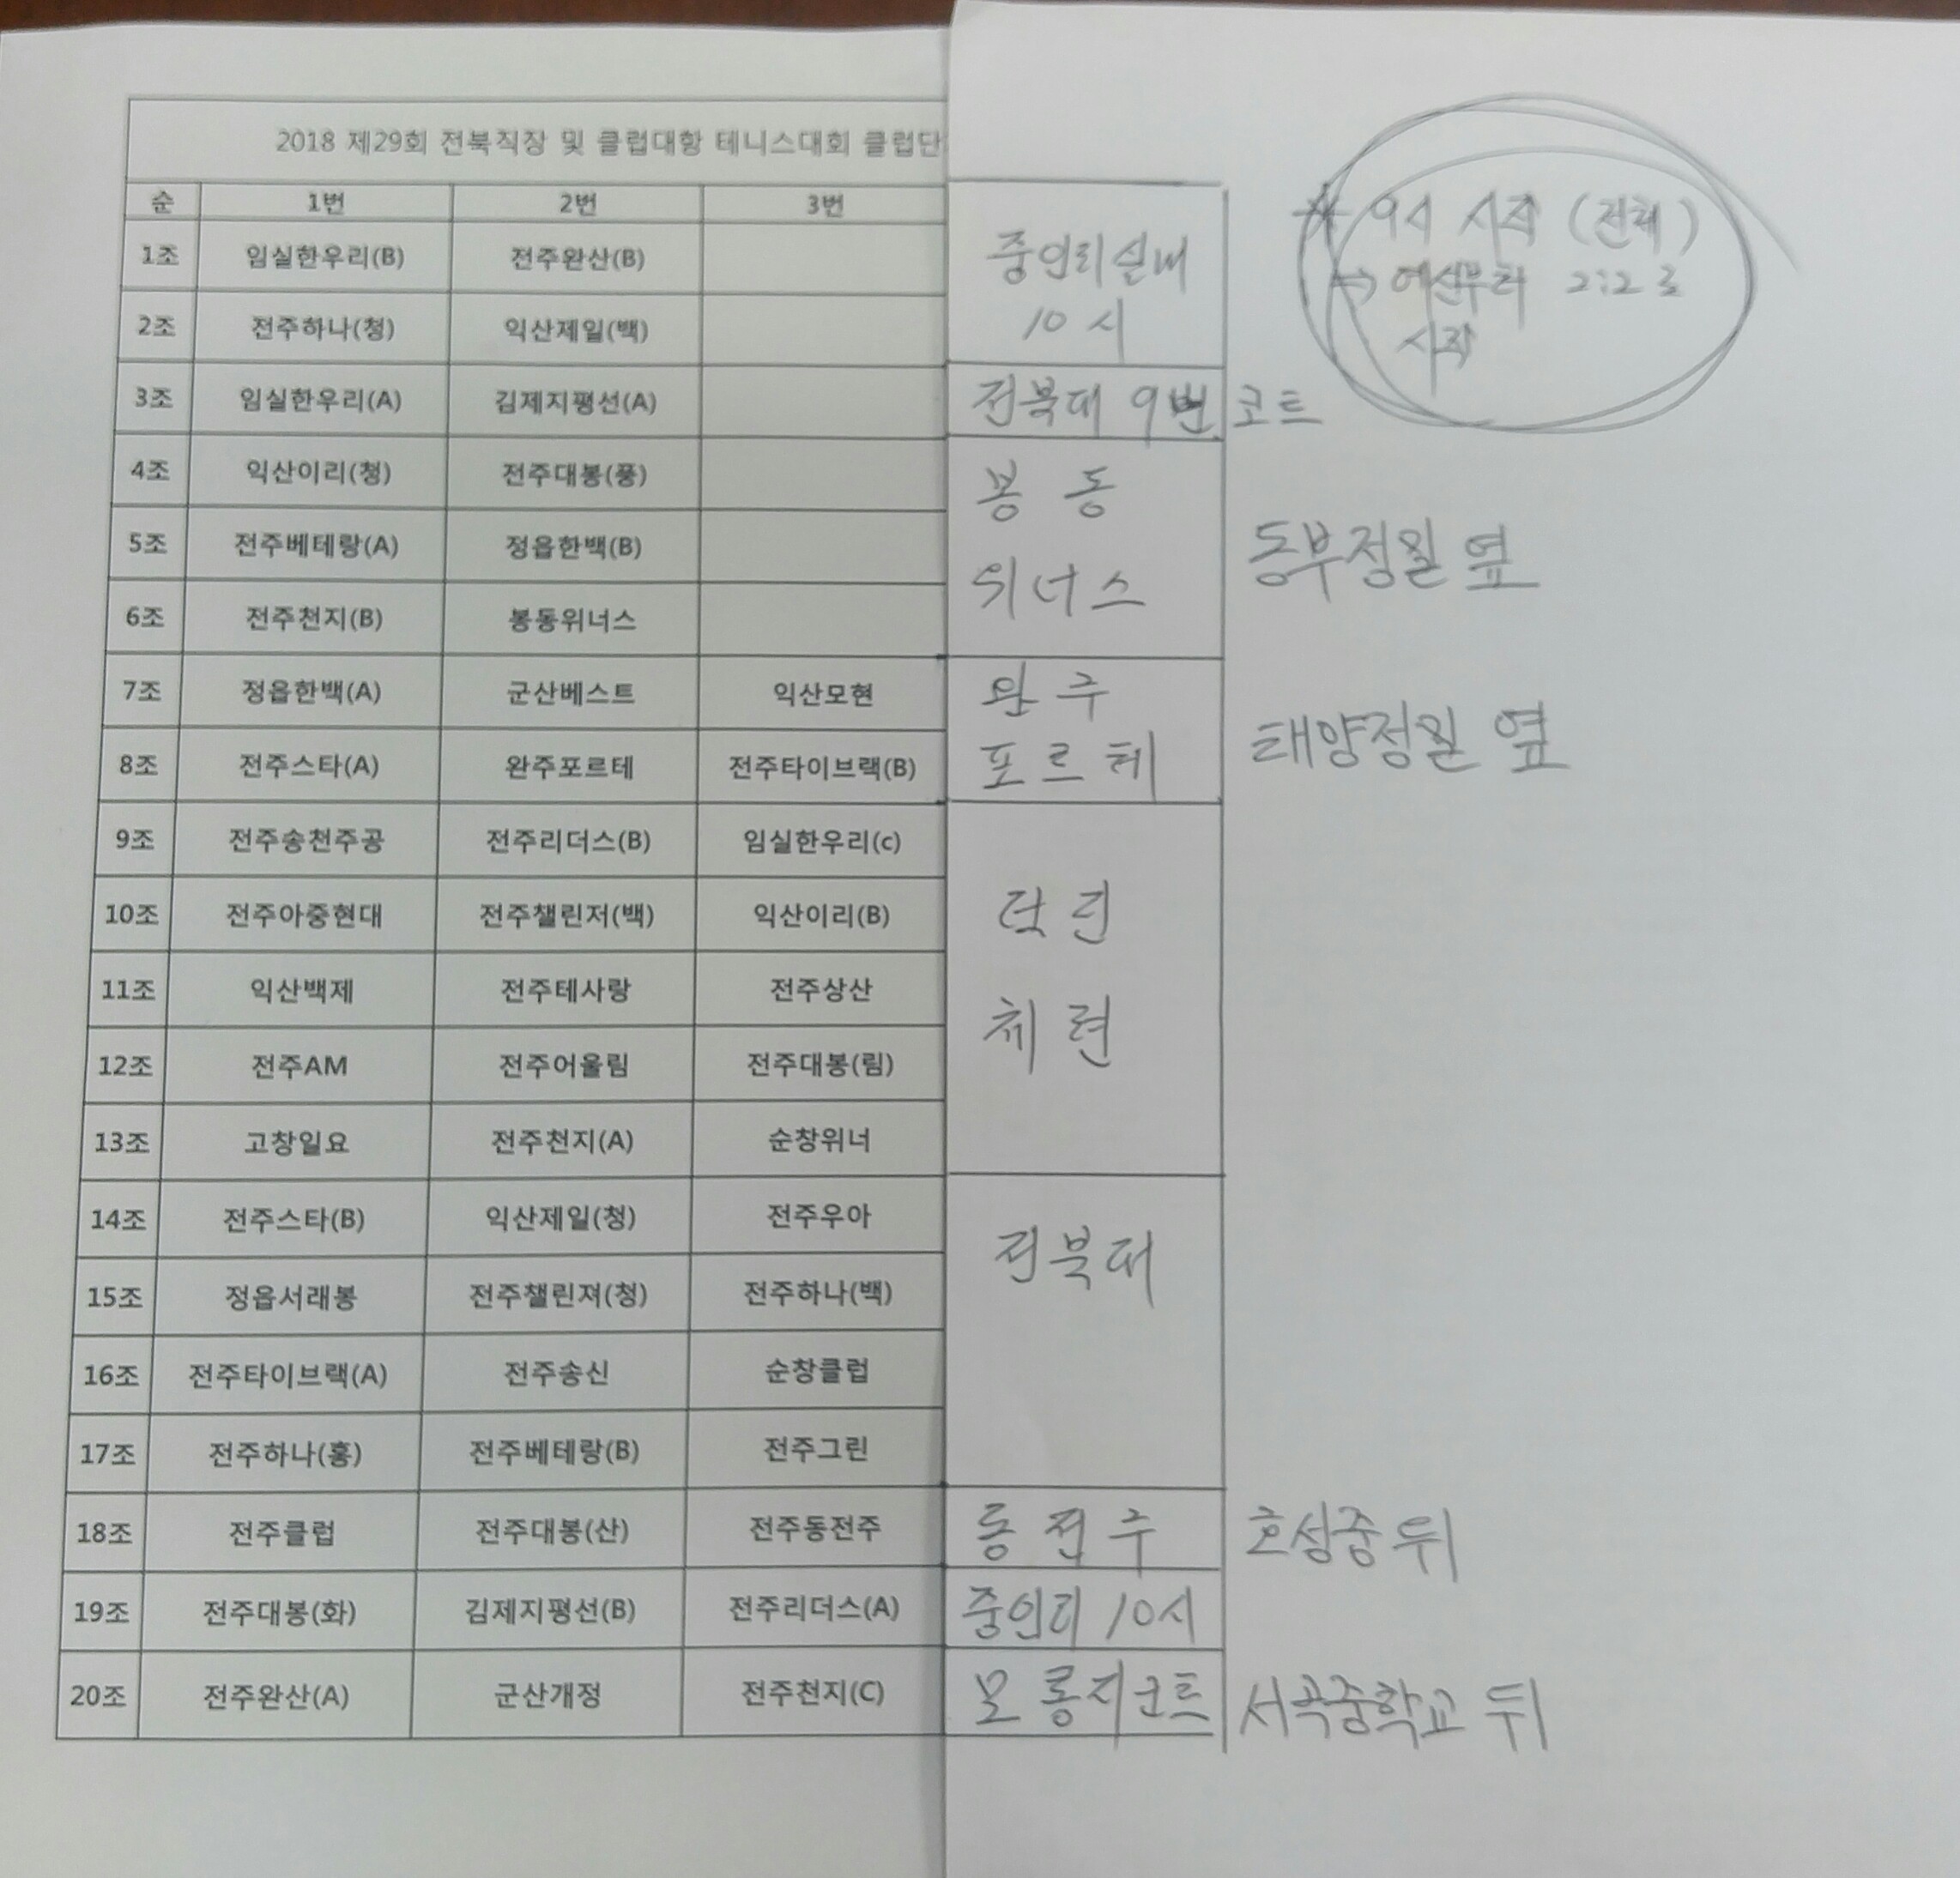 2018 제29회 전북직장 및 클럽대항 테니스대회 클럽단
순 1번 2번 3번
1조 임실한우리(B) 전주완산(B)
2조 전주하나(청) 익산제일(백)
중인리실내
10시
3조 임실한우리(A) 김제지평선(A) 전북대 9번 코트
4조 익산이리(청) 전주대봉(풍)
5조 전주베테랑(A) 정읍한백(B)
6조 전주천지(B) 봉동위너스
봉동
위너스
동부정원 옆
7조 정읍한백(A) 군산베스트 익산모현
8조 전주스타(A) 완주포르테 전주타이브랙(B)
완주
포르테
태양정원 옆
9조 전주송천주공 전주리더스(B) 임실한우리(c)
10조 전주아중현대 전주챌린저(백) 익산이리(B)
11조 익산백제 전주테사랑 전주상산
12조 전주AM 전주어울림 전주대봉(림)
13조 고창일요 전주천지(A) 순창위너
덕진
체련
14조 전주스타(B) 익산제일(청) 전주우아
15조 정읍서래봉 전주챌린져(청) 전주하나(백)
16조 전주타이브랙(A) 전주송신 순창클럽
17조 전주하나(홍) 전주베테랑(B) 전주그린
전북대
18조 전주클럽 전주대봉(산) 전주동전주 동전주 호성중 뒤
19조 전주대봉(화) 김제지평선(B) 전주리더스(A) 중인리 10시
20조 전주완산(A) 군산개정 전주천지(C) 모롱지코트 서곡중학교 뒤
* 9시 시작 (전체)
→ 예선부터 2:2로
시작